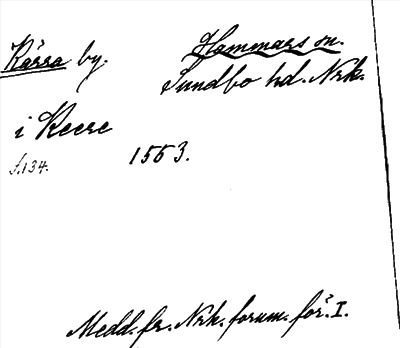 Kärra by. Hammars sn.
Sundbo hd. Nrk.
i Keere
f. 134. 1553.
Medd. fr. Nrk. fornm. för. I.